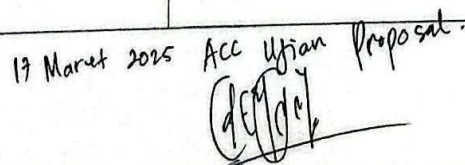 17 Maret 2025 ACC Ujian Proposal.